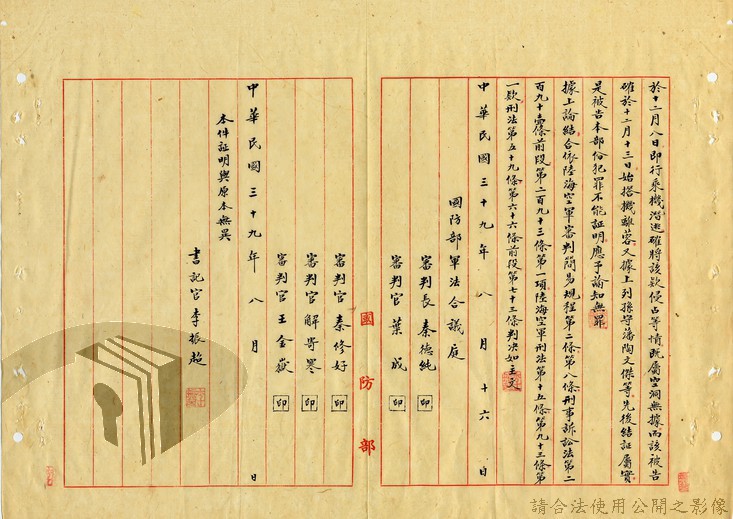 於十二月八日即行乘機潛逃確將該欵侵占等情既屬空洞無據而該被告
確於十二月十三日始搭機離蓉又據上列孫守潘陶文傑等先後結証屬實
是被告本部份犯罪不能証明應予諭知無罪
據上論結合依陸海空軍審判簡易規程第二條第八條刑事訴訟法第二
百九十壹條前段第二百九十三條第一項陸海空軍刑法第十五條第九十三條第
一欵刑法第五十九條第六十六條前段第七十三條判決如主文
中華民國三十九年八月十六日
國防部軍法合議庭
審判長 秦德純 印
審判官 葉成 印
國防部
審判官 秦修好 印
審判官 解寄寒 印
審判官 王金嶽 印
中華民國三十九年八月 日
本件証明與原本無異
書記官 李振超
請合法使用公開之影像